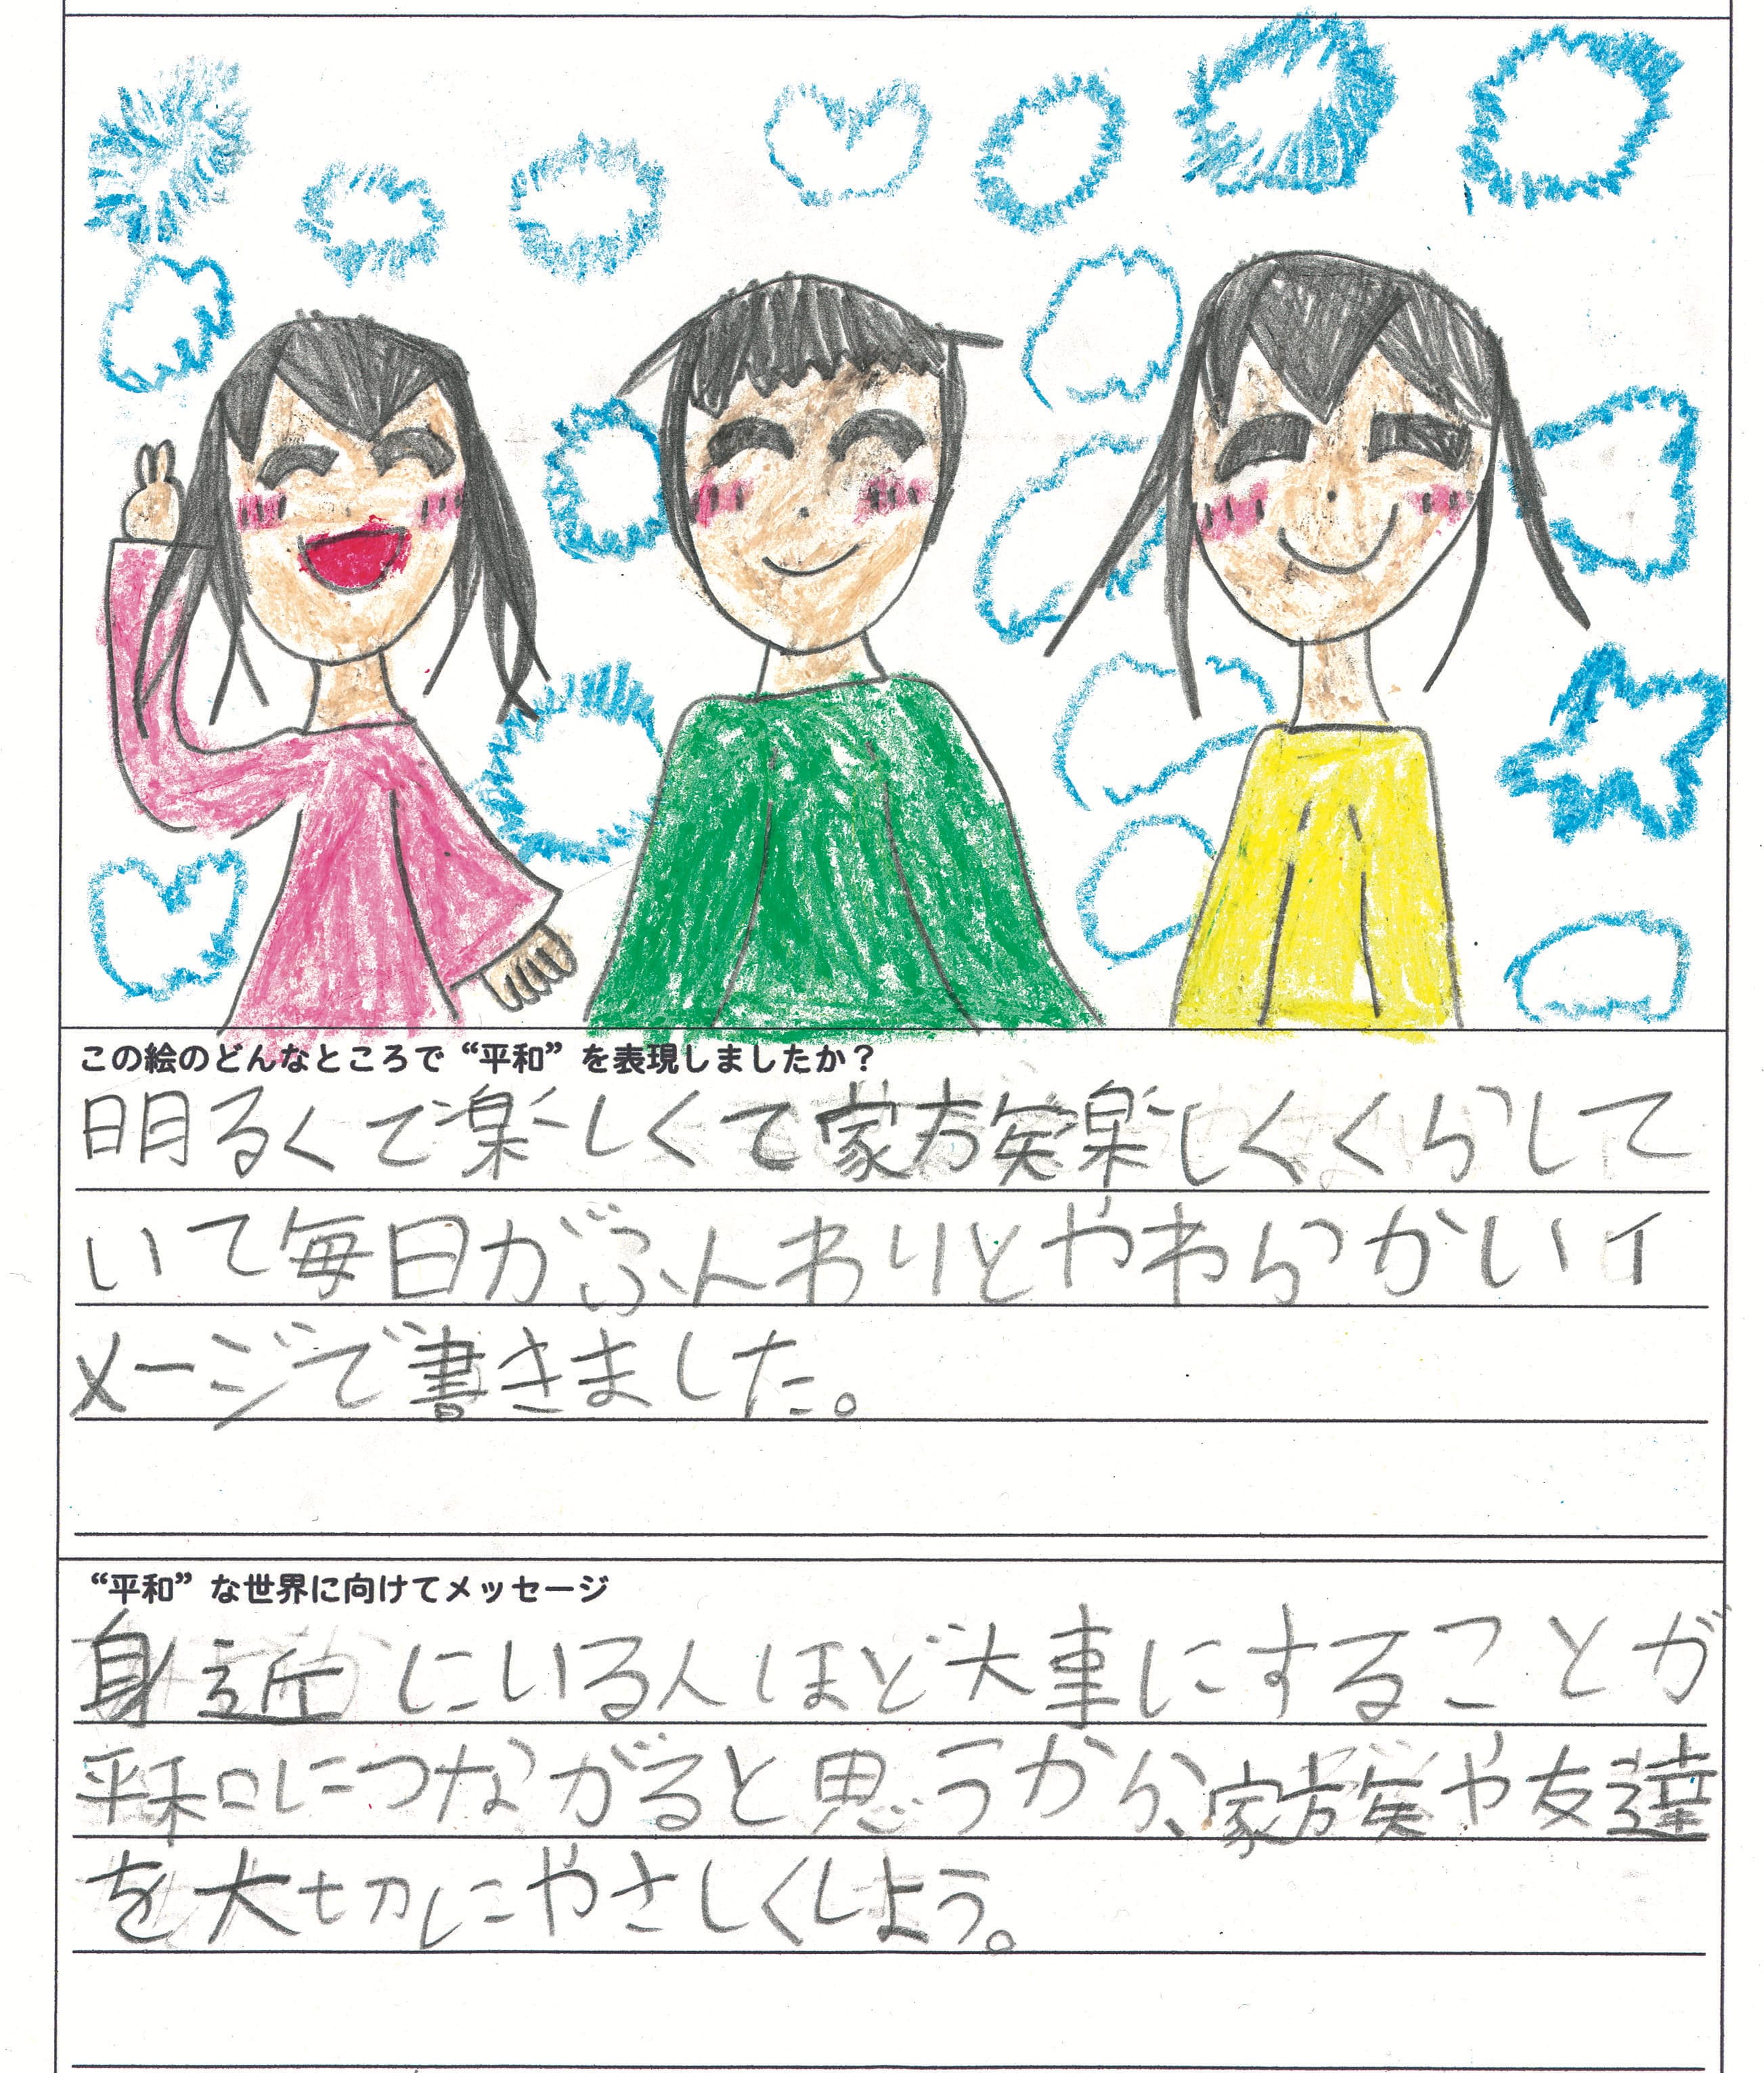 この絵のどんなところで“平和”を表現しましたか？
明るくて楽しくて家族楽しくくらして
いて毎日がふんわりとやわらかいイ
メージで書きました。
“平和”な世界に向けてメッセージ
身近にいる人ほど大事にすることが
平和につながると思うから、家族や友達
を大切にやさしくしよう。